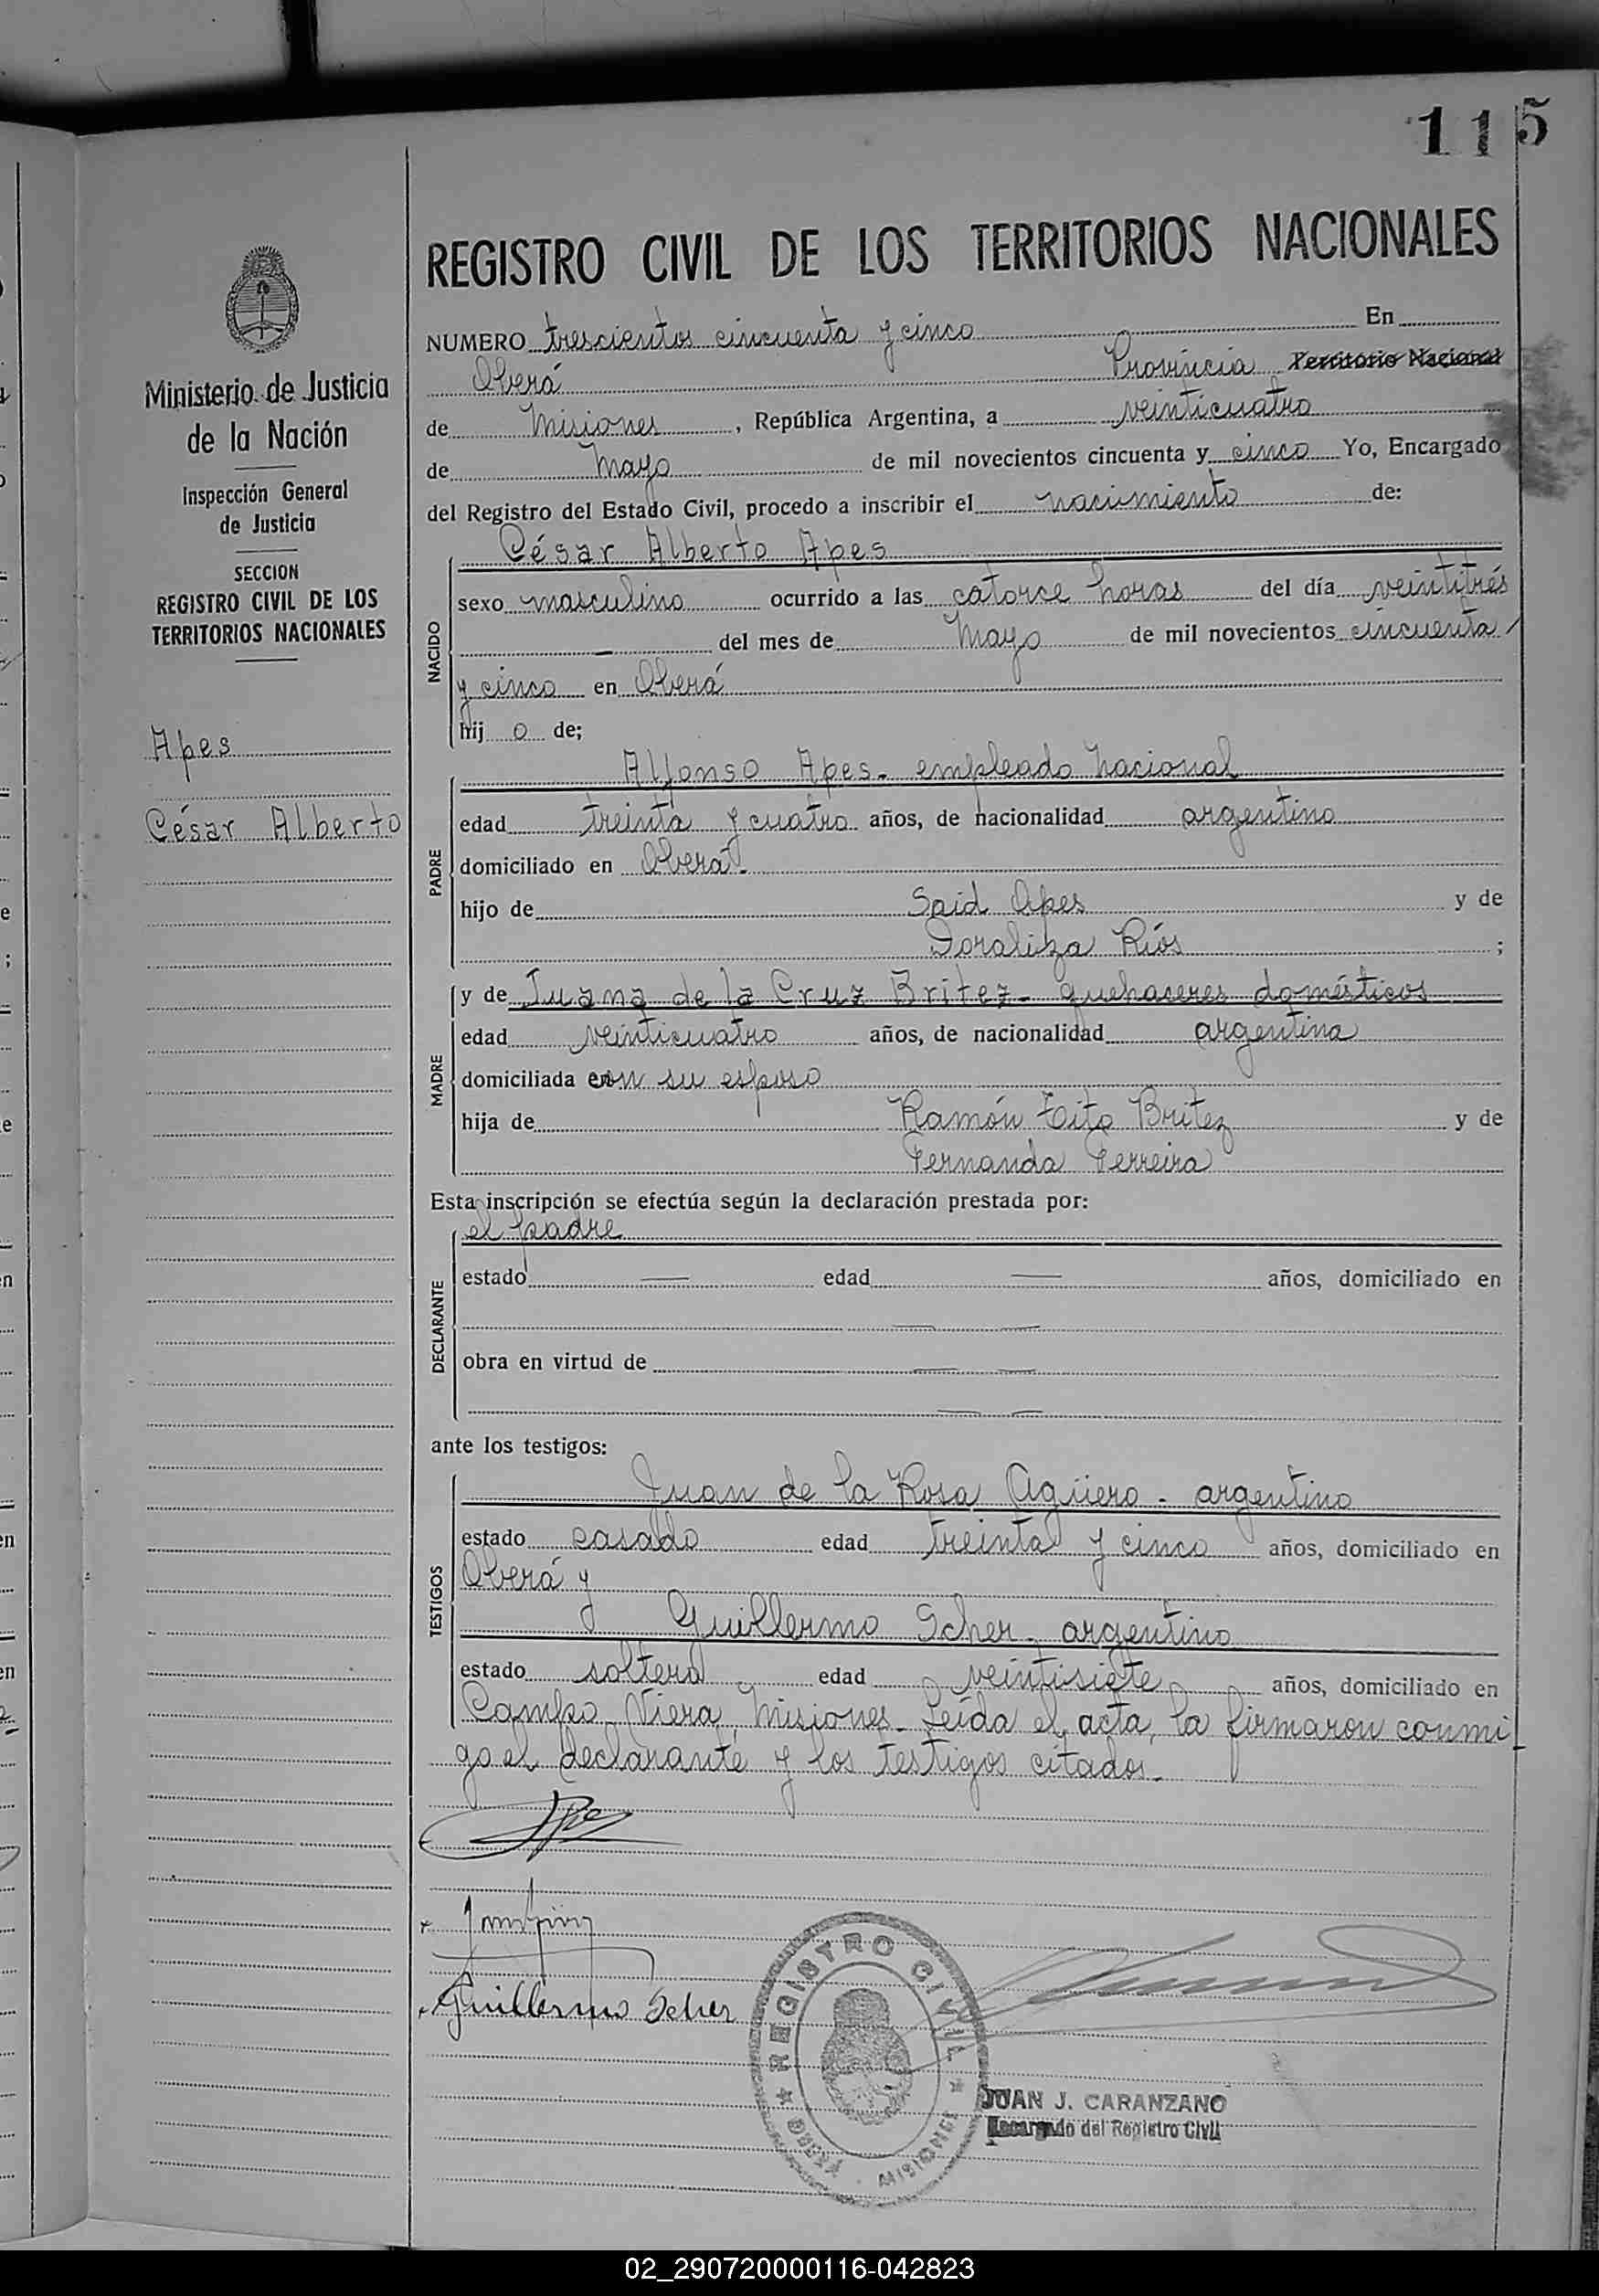 115
Ministerio de Justicia
de la Nación
Inspección General
de Justicia
SECCION
REGISTRO CIVIL DE LOS
TERRITORIOS NACIONALES
Apes
César Alberto
REGISTRO CIVIL DE LOS TERRITORIOS NACIONALES
NUMERO trescientos cincuenta y cinco En
Oberá Provincia Territorio Nacional
de Misiones, República Argentina, a veinticuatro
de Mayo de mil novecientos cincuenta y cinco Yo, Encargado
del Registro del Estado Civil, procedo a inscribir el nacimiento de:
NACIDO
César Alberto Apes
sexo masculino ocurrido a las catorce horas del día veintitrés
— del mes de Mayo de mil novecientos cincuenta
y cinco en Oberá
hijo de;
PADRE
Alfonso Apes- empleado nacional
edad treinta y cuatro años, de nacionalidad argentino
domiciliado en Oberá-
hijo de Said Apes y de
Doraliza Ríos ;
MADRE
y de Juana de la Cruz Britez- quehaceres domésticos
edad veinticuatro años, de nacionalidad argentina
domiciliada con su esposo
hija de Ramón Tito Britez y de
Fernanda Ferreira
Esta inscripción se efectúa según la declaración prestada por:
DECLARANTE
el padre
estado — edad — años, domiciliado en
— —
obra en virtud de — —
— —
ante los testigos:
TESTIGOS
Juan de la Rosa Agüero - argentino
estado casado edad treinta y cinco años, domiciliado en
Oberá y
Guillermo Scher- argentino
estado soltero edad veintisiete años, domiciliado en
Campo Viera, Misiones- Leída el acta, la firmaron conmi-
go el declarante y los testigos citados-
Guillermo Scher
REGISTRO CIVIL
OBERA - MISIONES
JUAN J. CARANZANO
Encargado del Registro Civil
02_290720000116-042823